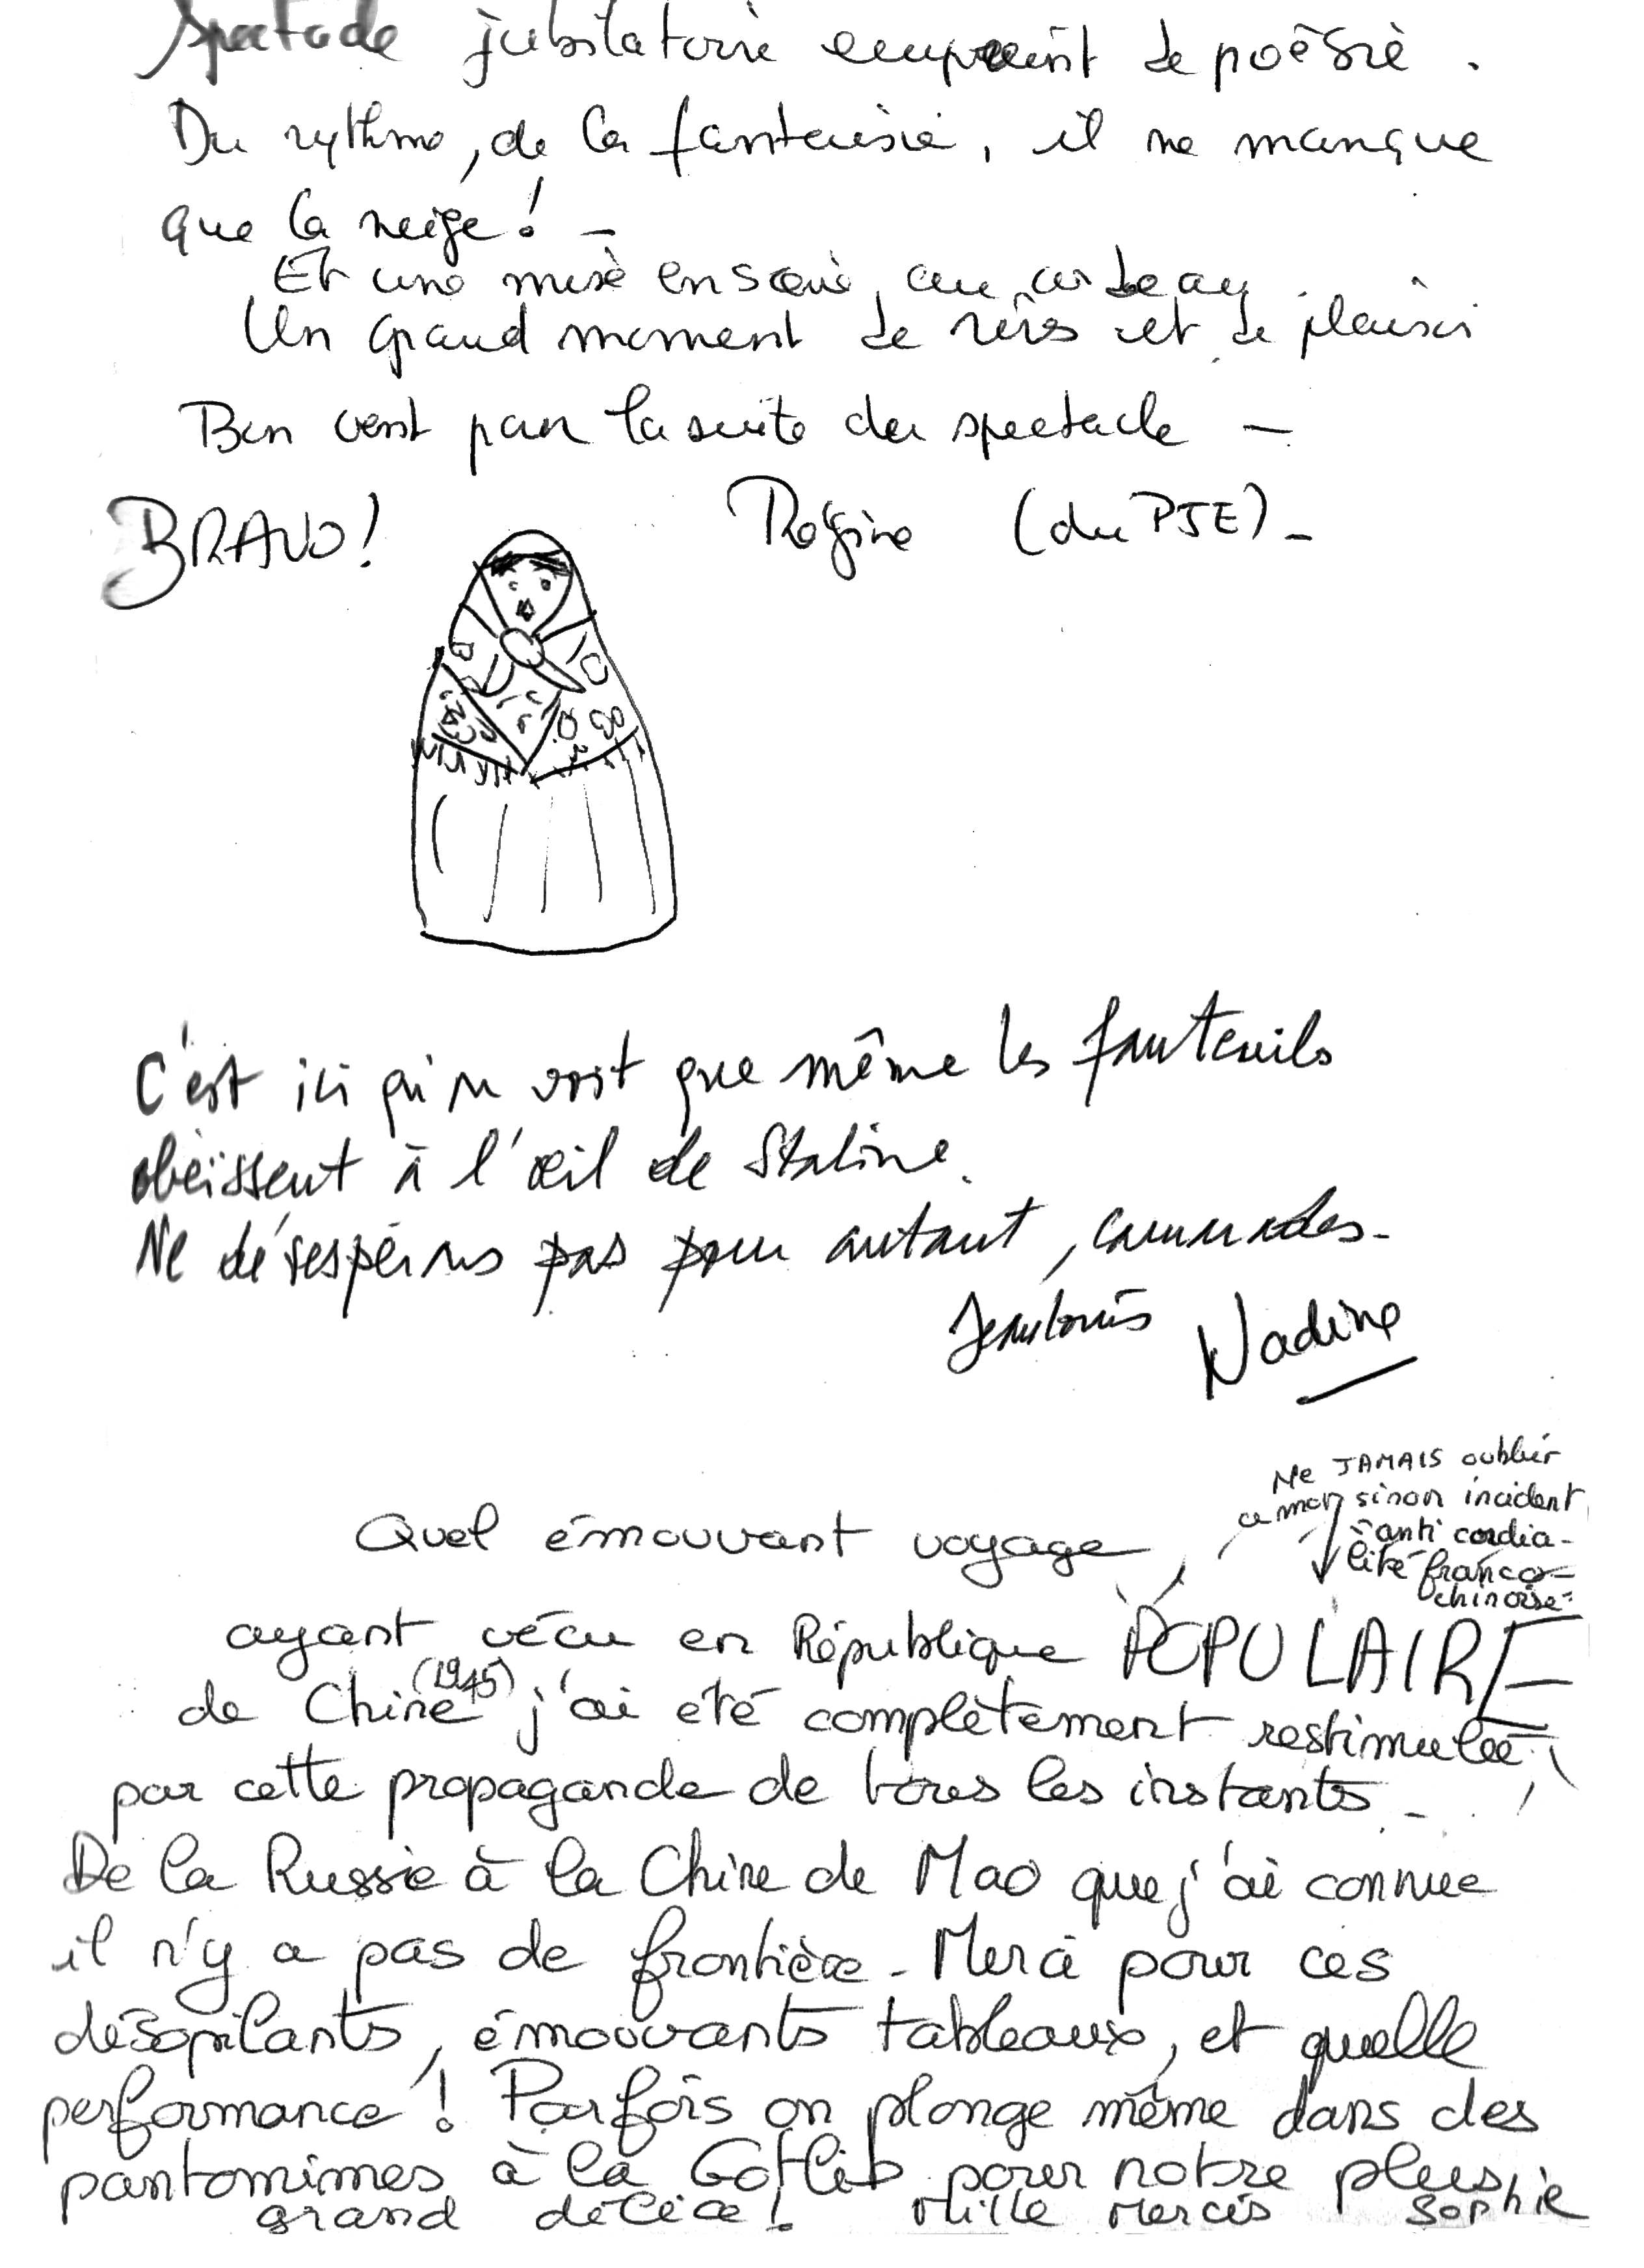 Spectacle jubilatoire empreint de poésie.
Du rythme, de la fantaisie, il ne manque
que la neige ! –
Et une mise en scène au cordeau.
Un grand moment de rires et de plaisir
Bon vent pour la suite du spectacle –
BRAVO! Régine (du PJE) –
C'est ici qu'on voit que même les fauteuils
obéissent à l'œil de Staline.
Ne désespérons pas pour autant, camarades –
Jean Louis Nadine
Ne JAMAIS oublier
ce mot sinon incident
anti cordia-
lité franco-
chinoise
Quel émouvant voyage,
ayant vécu en République POPULAIRE
de Chine (1975) j'ai été complètement restimulée,
par cette propagande de tous les instants –
De la Russie à la Chine de Mao que j'ai connue
il n'y a pas de frontière – Merci pour ces
désopilants, émouvants tableaux, et quelle
performance ! Parfois on plonge même dans des
pantomimes à la Gotlib pour notre plus
grand délice ! Mille Mercis Sophie